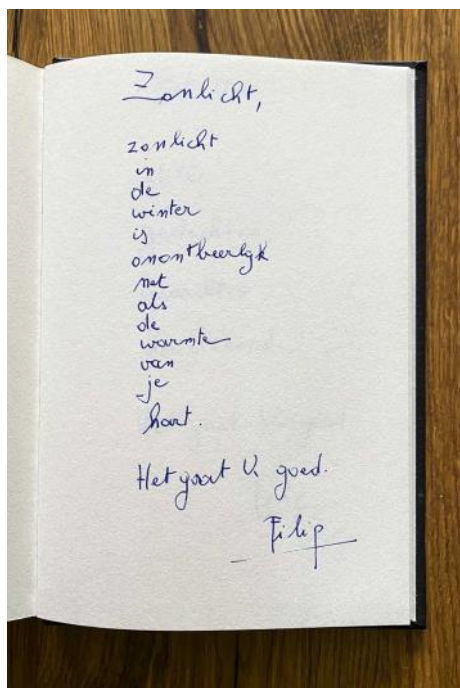 Zonlicht,
zonlicht
in
de
winter
is
onontbeerlijk
net
als
de
warmte
van
je
hart.
Het gaat U goed.
Filip